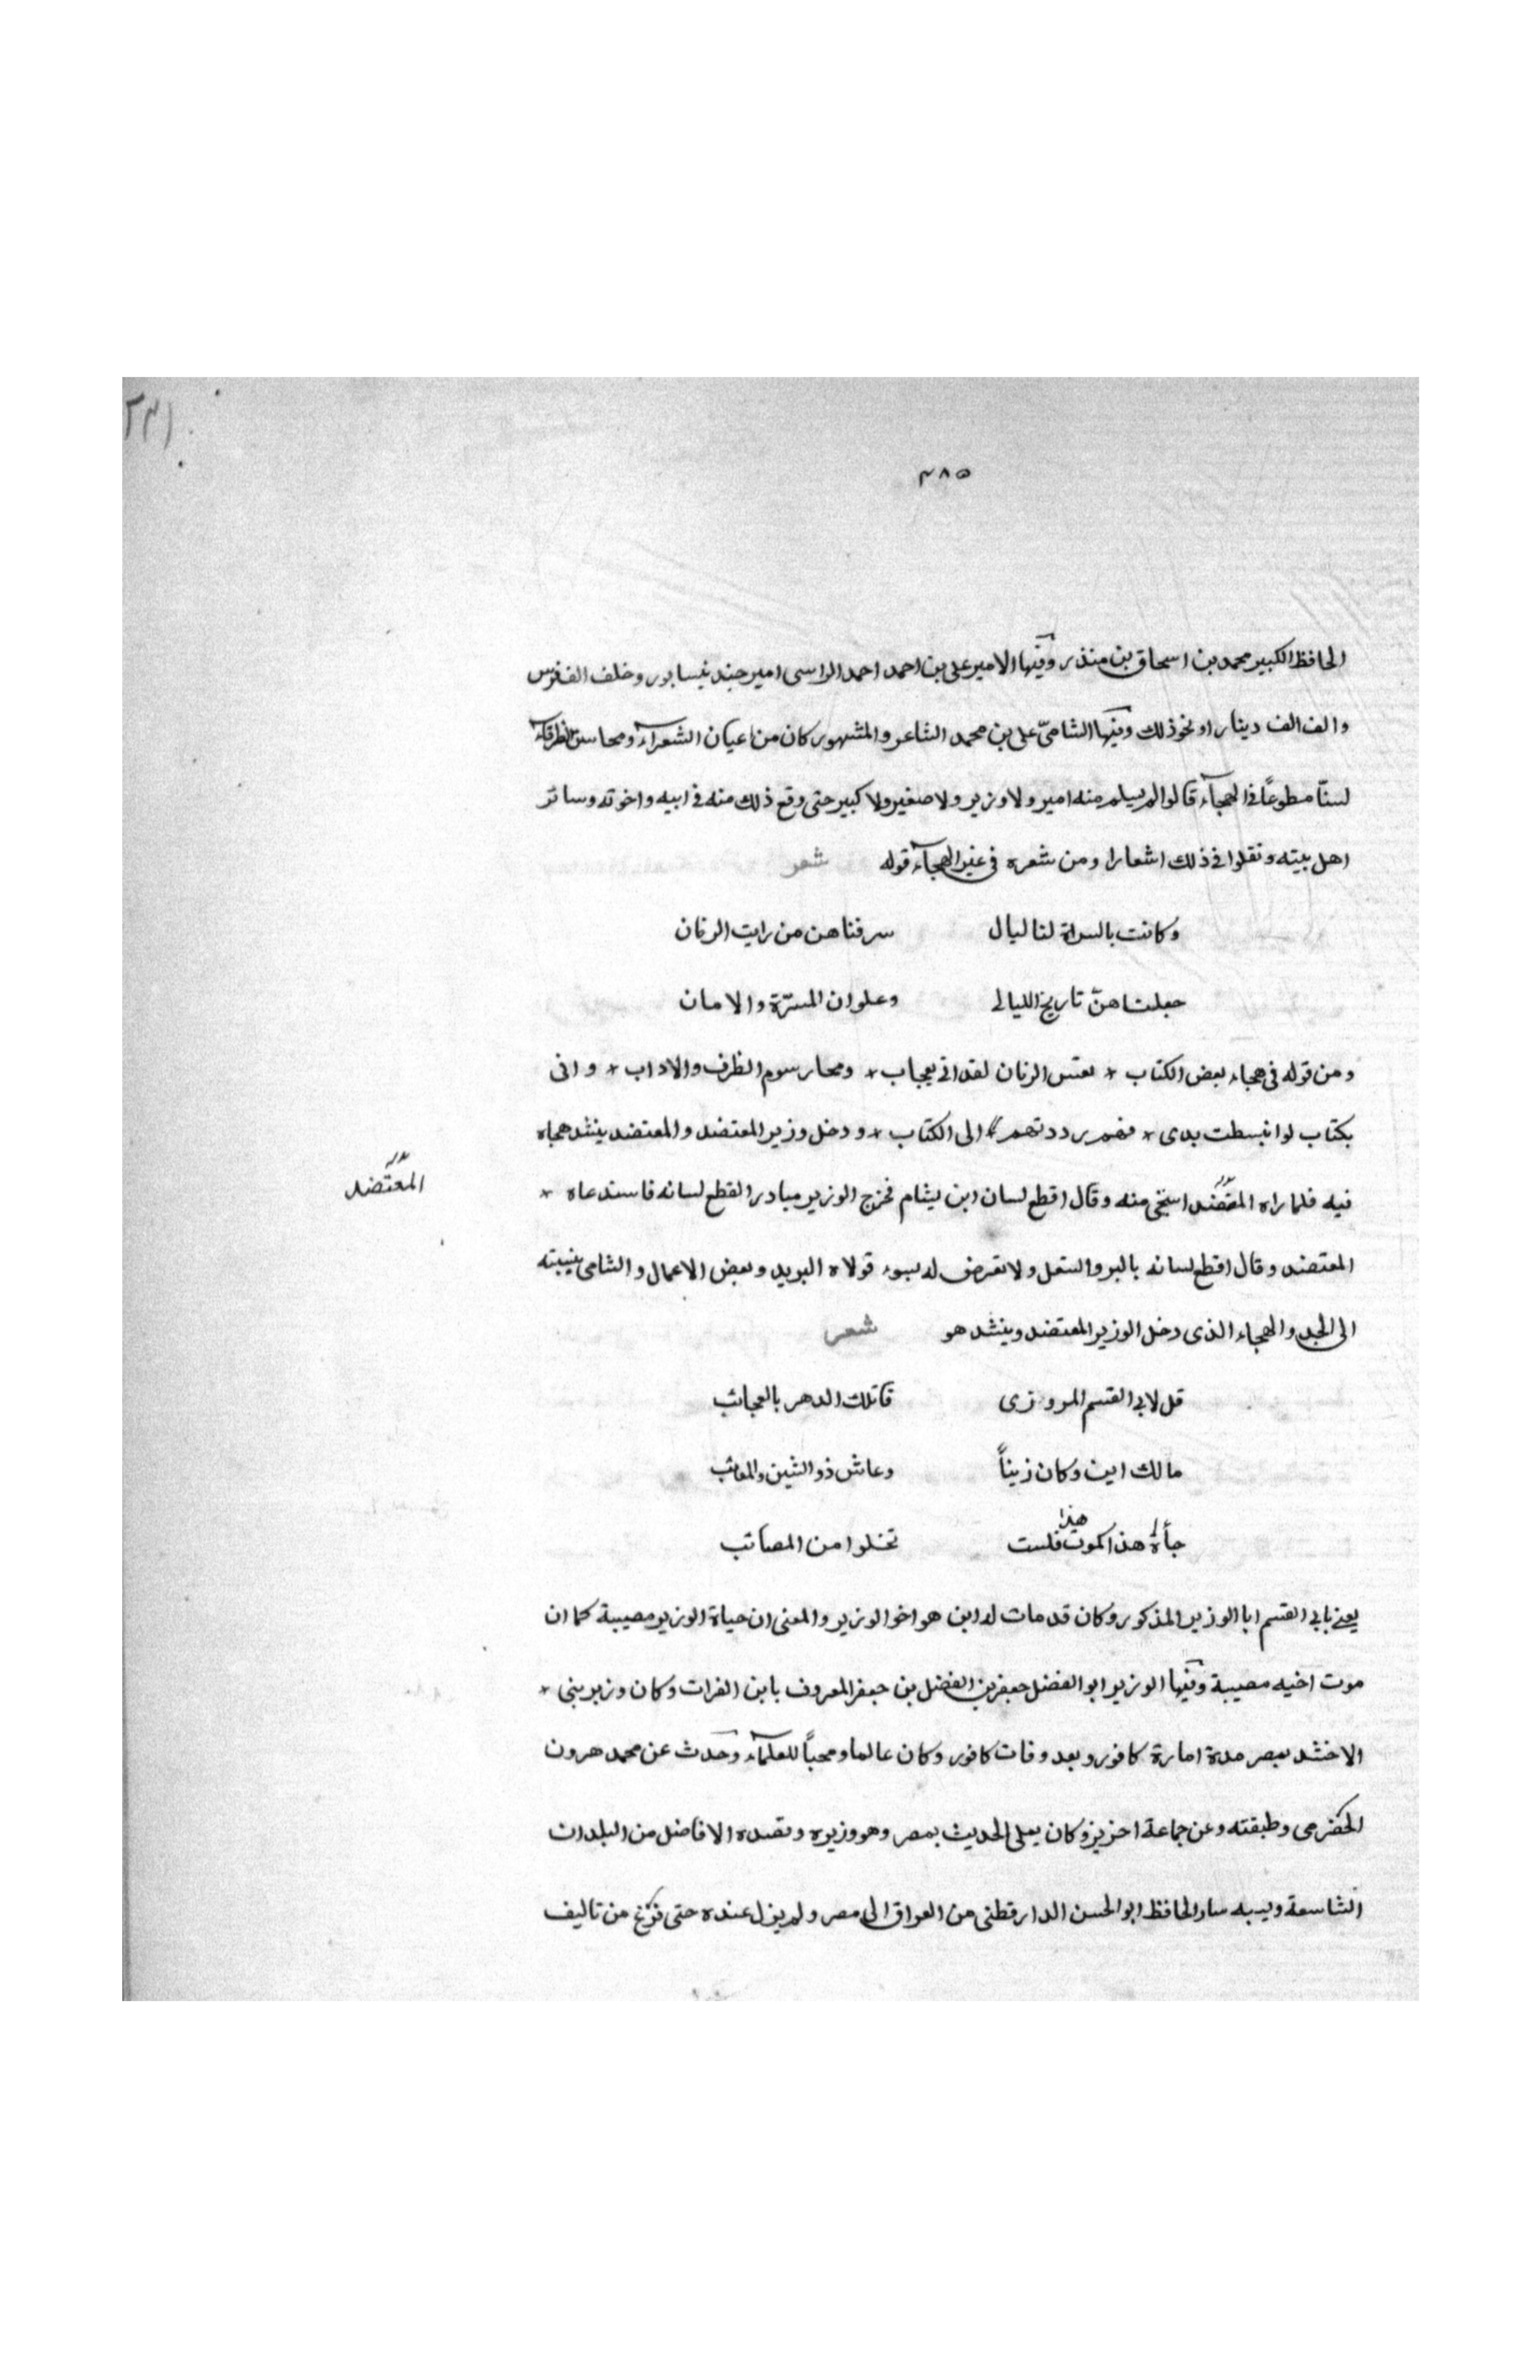 ٤٨٥
الحافظ الكبير محمد بن اسحاق بن منذر وفيها الامير على بن احمد احمد الراسى امير جند نيسابور وخلف الف فرس
والف الف دينار او نحو ذلك وفيها الشامىّ على بن محمد الشاعر والمشهور كان من اعيان الشعرآء ومحاسن الظرفآء
لسنّا مطبوعًا فى الهجآء قالوا لم يسلم منه امير ولا وزير ولا صغير ولا كبير حتى وقع ذلك منه فى ابيه واخوته وسائر
اهل بيته ونقلوا فى ذلك اشعارا ومن شعره فى غير الهجآء قوله شعر
وكانت بالسراة لنا ليال سرقناهن من رايت الزمان
جعلناهنّ تاريخ الليالى وعلوان المسرّة والامان
ومن قوله فى هجاء بعض الكتاب * تعس الزمان لقد اتى بعجاب * ومحا رسوم الظرف والاداب * واتى
بكتاب لو انبسطت يدى * فيهم رددتهم الى الكتاب * ودخل وزير المعتضد والمعتضد ينشد هجاه
فيه فلما راه المعتضد استحى منه وقال اقطع لسان ابن بشام فخرج الوزير مبادرا لقطع لسانه فاستدعاه *
المعتضد
المعتضد وقال اقطع لسانه بالبر والشغل ولا تعرض له بسوء فولاه البريد وبعض الاعمال والشامى بنسبته
الى الجد والهجاء الذى دخل الوزير المعتضد وينشد هو شعر
قل لابى القسم المروزى قاتلك الدهر بالعجائب
مالك ابن وكان زينًا وعاش ذو الشين والمعائب
حياة هذا كموت هذا فلست تخلوا من المصائب
يعنى بابى القسم ابا الوزير المذكور وكان قد مات له ابن هو اخو الوزير والمعنى ان حياة الوزير مصيبة كما ان
موت اخيه مصيبة وفيها الوزير ابو الفضل جعفر بن الفضل بن جعفر المعروف بابن الفرات وكان وزير بنى *
الاخشد بمصر مدة امارة كافور وبعد وفات كافور وكان عالما ومحبًا للعلمآء وحدث عن محمد هرون
الحضرمى وطبقته وعن جماعة اخرين وكان يملى الحديث بمصر وهو وزيره وقصده الافاضل من البلدان
الشاسعة وبسببه سار الحافظ ابو الحسن الدارقطنى من العراق الى مصر ولم يزل عنده حتى فرغ من تاليف